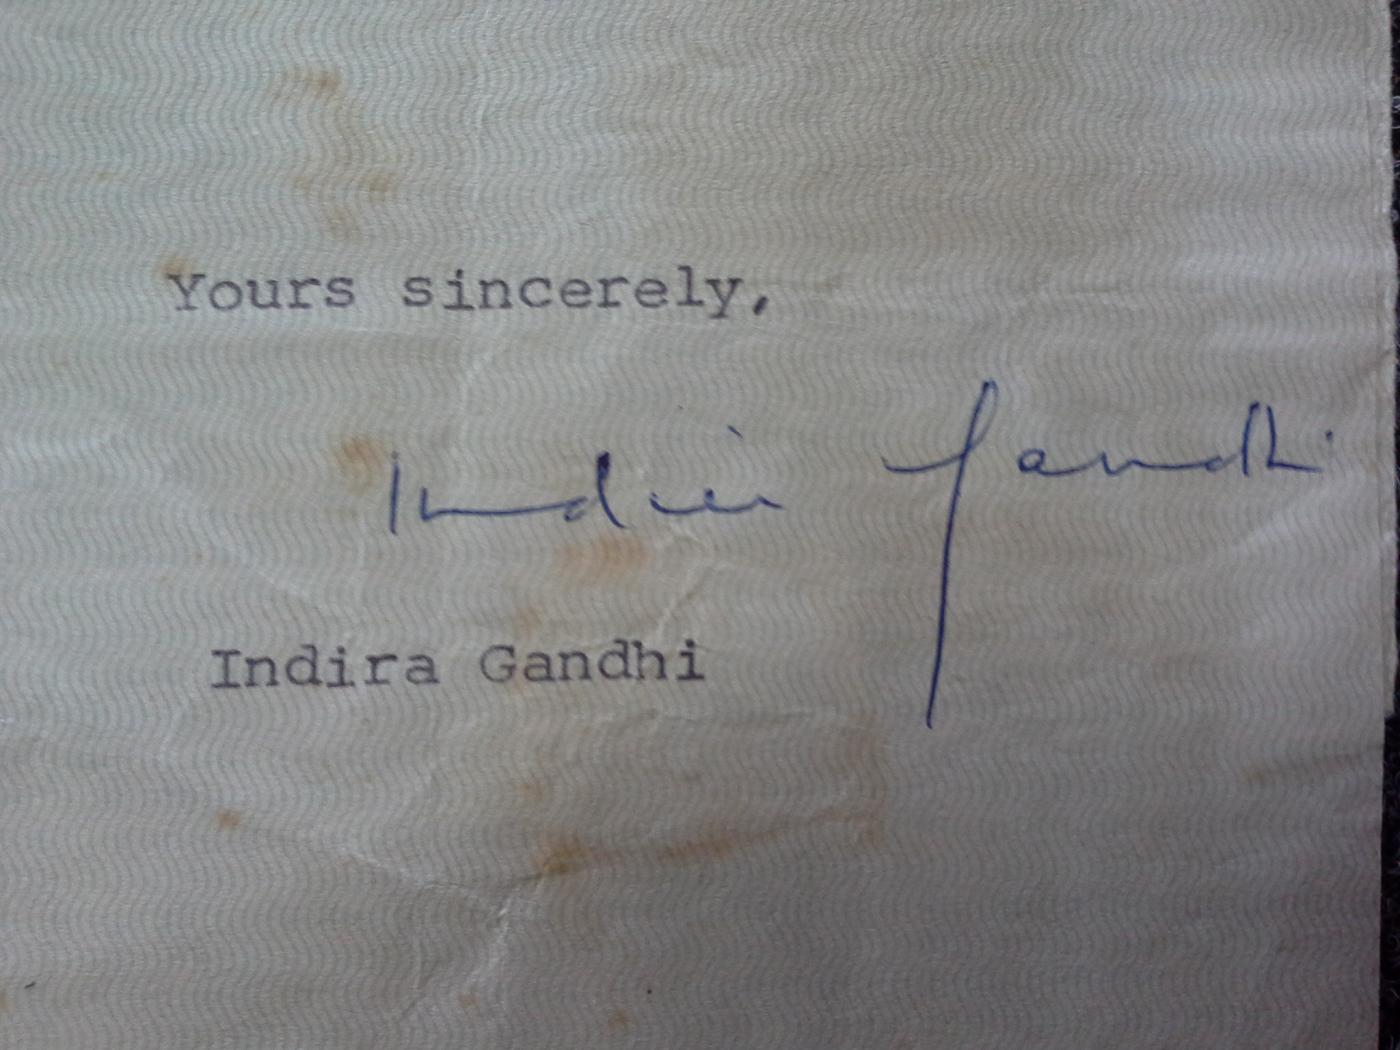 Yours sincerely,
Indira Gandhi
Indira Gandhi